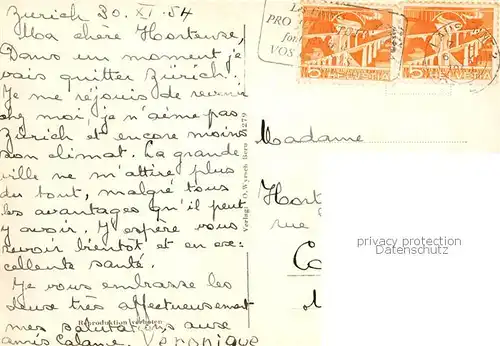 Zurich 30. XI. 54
Ma chère Hortense,
Dans un moment je
vais quitter Zürich.
Je me réjouis de revenir
chez moi, je n'aime pas
Zurich et encore moins
son climat. La grande
ville ne m'attire plus
du tout, malgré tous
les avantages qu'il peut
y avoir. J'espère vous
revoir bientôt et en ex-
cellente santé.
Je vous embrasse les
deux très affectueusement
mes salutations aux
amis Calame. Veronique
Reproduktion verboten
Verlag O. Wyrsch Bern
PRO
VOS
5 HELVETIA
5 HELVETIA
Madame
Hort
rue
privacy protection
Datenschutz